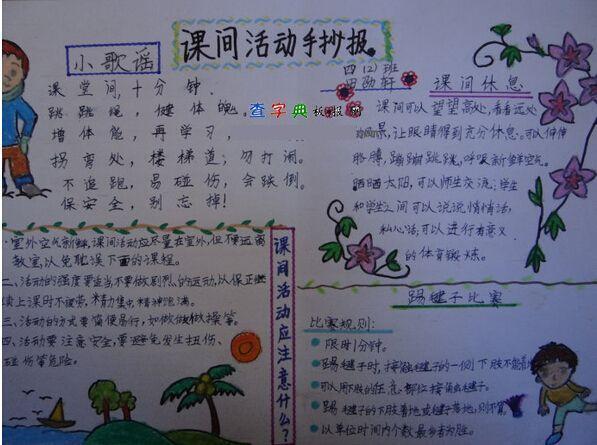 课间活动手抄报
小歌谣
课堂间,十分钟.
跳跳绳,健体魄.
增体能,再学习,
拐弯处,楼梯道;勿打闹.
不追跑,易碰伤,会跌倒.
保安全,别忘掉!
查字典板报网
四(2)班
课间休息
课间可以望望高处,看看远处
景,让眼睛得到充分休息。可以伸伸
胳膊,蹦蹦跳跳,呼吸新鲜空气。
晒晒太阳,可以师生交流;学生
和学生之间可以说说悄悄话,
私心话,可以进行有意义
的体育锻炼。
室外空气新鲜,课间活动应尽量在室外,但不要远离
教室,以免耽误下面的课程。
二、活动的强度要适当不要做剧烈的运动,以保证继
续上课时不疲劳、精力集中,精神饱满。
三、活动的方式要简便易行,如做做操等。
四、活动要注意安全,要避免发生扭伤、
碰伤等危险。
课间活动应注意什么?
踢毽子比赛
比赛规则:
限时1分钟。
踢毽子时,接触毽子的一侧下肢不能着地
可以用下肢的任意部位接触毽子。
踢毽子的下肢着地或毽子落地,则不算。
以单位时间内个数最多者为胜。